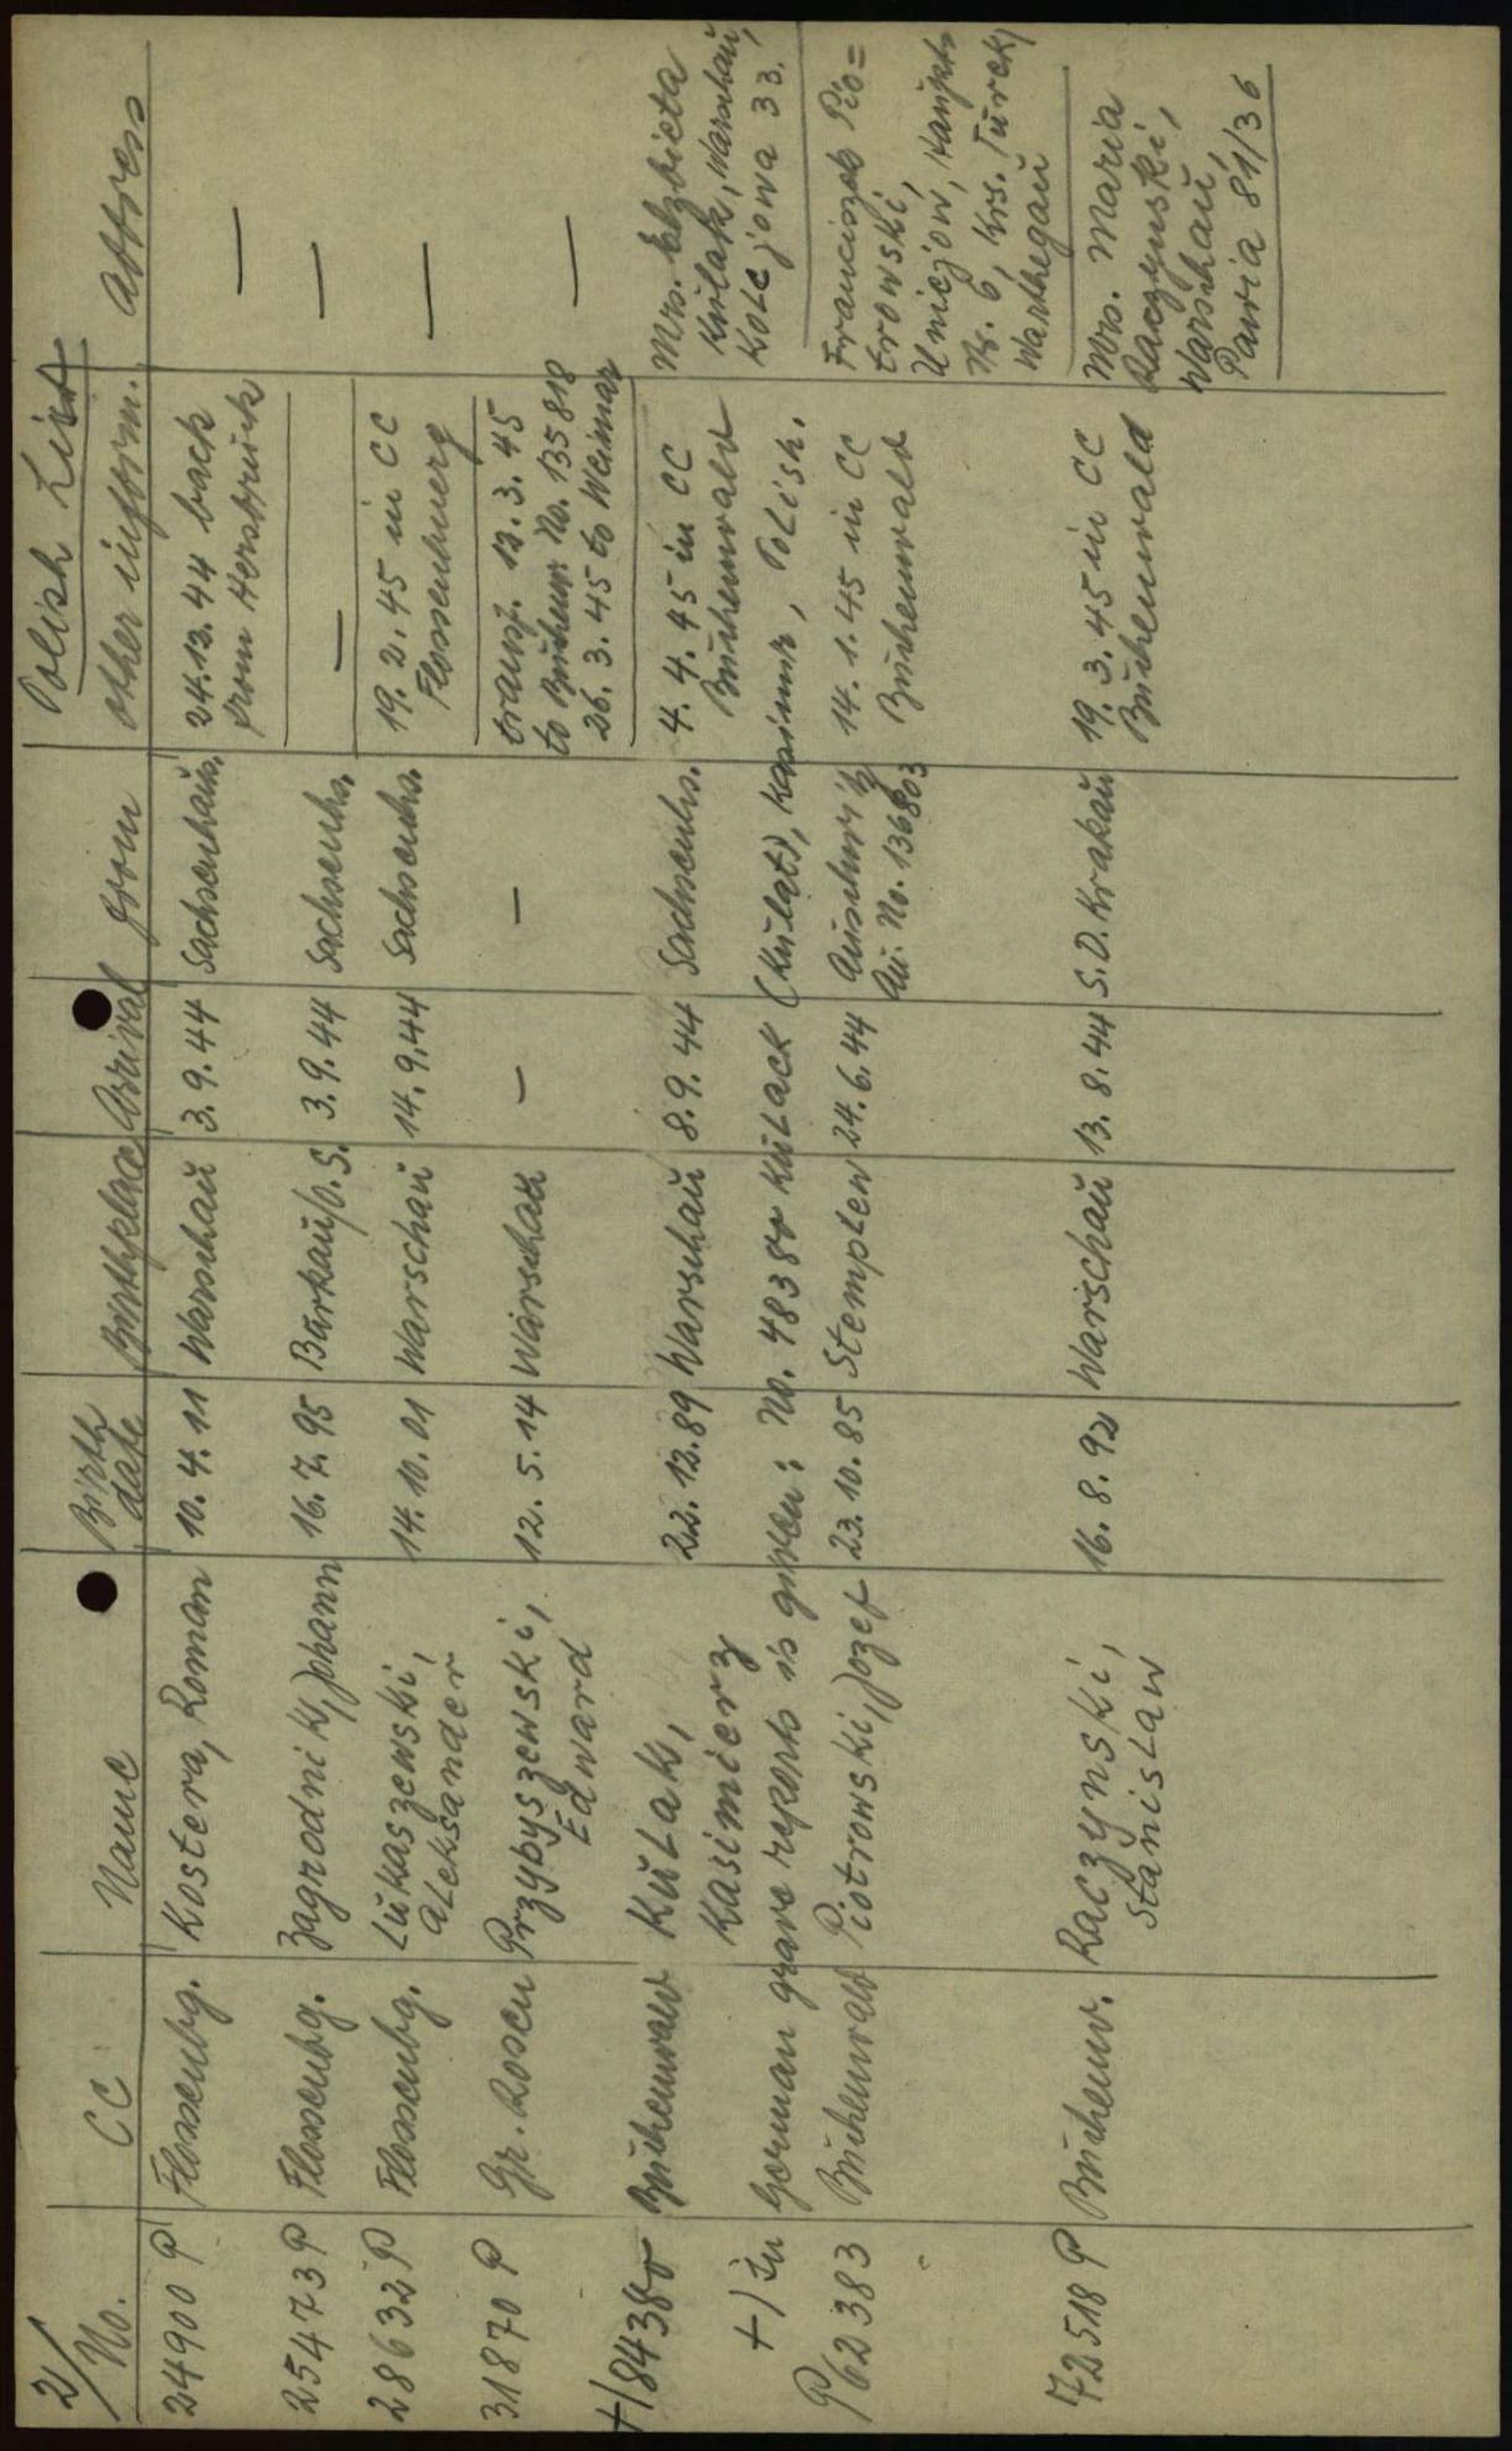 2/
Polish List
No. CC Name Birth date Birthplace Arrival from other inform. Address
24900 P Flossenbg. Kostera, Roman 10.4.11 Warschau 3.9.44 Sachsenhaus. 24.12.44 back
from Hersbruck
—
25473 P Flossenbg. Zagrodnik, Johann 16.7.95 Barkau/O.S. 3.9.44 Sachsenhs. — —
28632 P Flossenbg. Lukaszewski, 14.10.01 Warschau 14.9.44 Sachsenhs. 19.2.45 in CC —
Aleksander Flossenbuerg
31870 P Gr. Rosen Przybyszewski, 12.5.14 Warschau — — transf. 12.3.45 —
Edward to Buchenw. No. 135818
26.3.45 to Weimar
+/ Buchenwald Kulak, 22.12.89 Warschau 8.9.44 Sachsenhs. 4.4.45 in CC Mrs. Elzbieta
Kasimierz Buchenwald Kulak, Warschau,
Kolejowa 33.
+/ In German grave reports is given: No. Kulack (Kulat), Kasimir, Polish.
P/62383 Buchenwald Piotrowski, Jozef 23.10.85 Stemplew 24.6.44 Auschwitz 14.1.45 in CC Franciszek Pio=
Au. No. 136803 Buchenwald trowski,
Uniejow, Haupts
Nr. 6, Krs. Turek,
Warthegau
72518 P Buchenw. Raczynski, 16.8.92 Warschau 13.8.44 S.D. Krakau 19.3.45 in CC Mrs. Maria
Stanislaw Buchenwald Raczynski,
Warschau,
Pawia 81/36